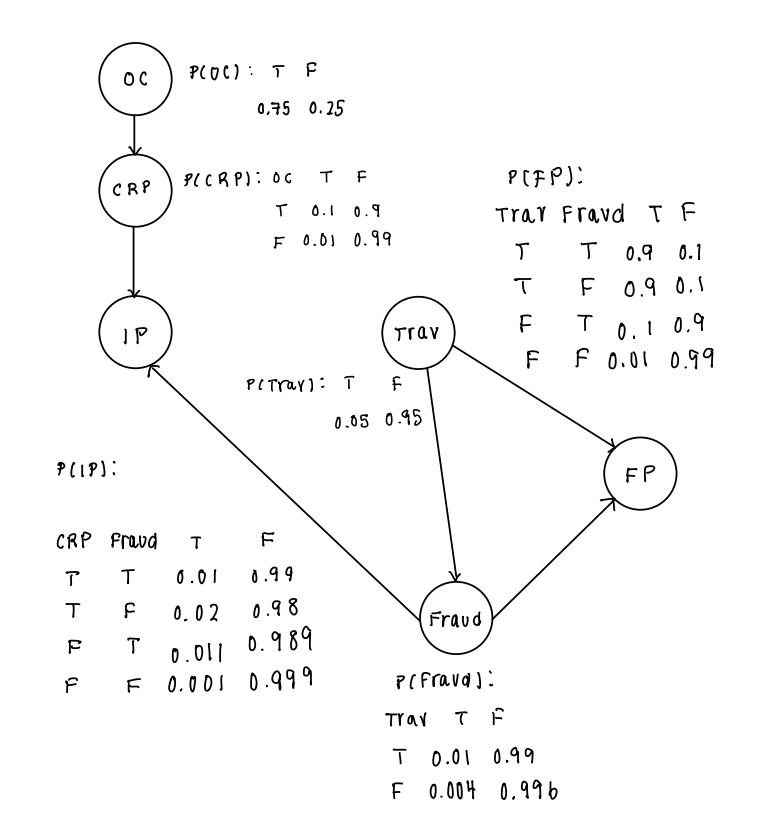 OC
P(OC): T F
0.75 0.25
CRP
P(CRP): OC T F
T 0.1 0.9
F 0.01 0.99
P(FP):
Trav Fraud T F
T T 0.9 0.1
T F 0.9 0.1
F T 0.1 0.9
F F 0.01 0.99
IP
Trav
P(Trav): T F
0.05 0.95
FP
P(IP):
CRP Fraud T F
T T 0.01 0.99
T F 0.02 0.98
F T 0.011 0.989
F F 0.001 0.999
Fraud
P(Fraud):
Trav T F
T 0.01 0.99
F 0.004 0.996